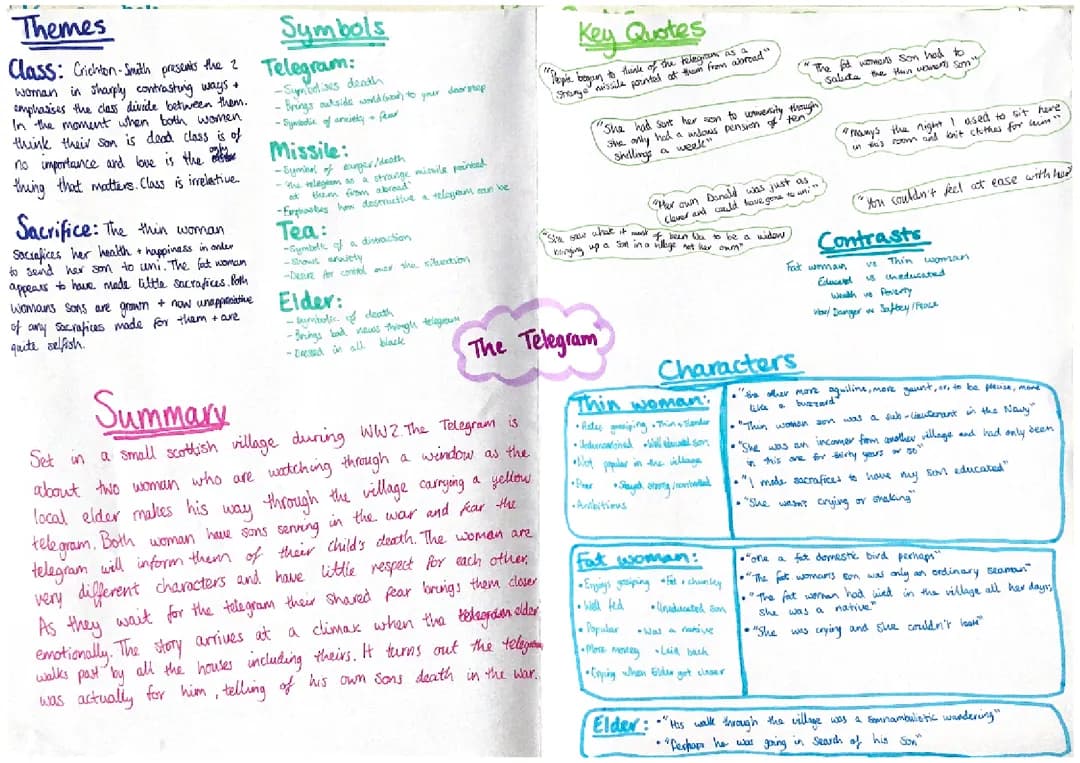 Themes
Class: Crichton-Smith presents the 2
woman in sharply contrasting ways +
emphasises the class divide between them.
In the moment when both women
think their son is dead class is of
no importance and love is the only
thing that matters. Class is irrelative
Sacrifice: The thin woman
sacrafices her health + happiness in order
to send her son to uni. The fat woman
appears to have made little sacrafices. Both
womans sons are grown + now unappreciative
of any sacrafices made for them + are
quite selfish.
Symbols
Telegram:
- Symbolises death
- Brings outside world (war) to your doorstep
- Symbolic of anxiety + fear
Missile:
- Symbol of danger/death
- "the telegram as a strange missile pointed
at them from abroad"
- Emphasises how destructive a telegram can be
Tea:
- Symbolic of a distraction
- Shows anxiety
- Desire for control over the situation
Elder:
- Symbolic of death
- Brings bad news through telegram
- Dressed in all black
The Telegram
Summary
Set in a small scottish village during WW2. The Telegram is
about two woman who are watching through a window as the
local elder makes his way through the village carrying a yellow
telegram. Both woman have sons serving in the war and fear the
telegram will inform them of their child's death. The woman are
very different characters and have little respect for each other.
As they wait for the telegram their shared fear brings them closer
emotionally. The story arrives at a climax when the elder
walks past by all the houses including theirs. It turns out the telegram
was actually for him, telling of his own sons death in the war.
Key Quotes
"People began to think of the telegram as a
strange missile pointed at them from abroad"
"The fat womans son had to
salute the thin womans son"
"She had sent her son to university though
she only had a widows pension of ten
shillings a week"
"Many's the night I used to sit here
in this room and knit clothes for him"
"Her own Donald was just as
clever and could have gone to uni"
"You couldn't feel at ease with her"
"She saw what it must of been like to be a widow
bringing up a son in a village not her own"
Contrasts
Fat woman vs Thin woman
Educated vs Uneducated
Wealth vs Poverty
War/Danger vs Peace
Characters
Thin woman:
• Hates gossiping • Thin + slender
• Well educated son
• Not popular in the village
• Poor • Stayed strong/controlled
• Ambitious
• "the other more aquiline, more gaunt, or, to be precise, more
like a buzzard"
• "Thin woman son was a sub-lieutenant in the Navy"
• "She was an incomer from another village and had only been
in this one for thirty years or so"
• "I made sacrafices to have my son educated"
• "She wasn't crying or shaking"
Fat woman:
• Enjoys gossiping • Fat + chunky
• Well fed • Uneducated son
• Popular • Was a native
• More money • Laid back
• Crying when Elder got closer
• "one a fat domestic bird perhaps"
• "The fat womans son was only an ordinary seaman"
• "The fat woman had lived in the village all her days,
she was a native"
• "She was crying and she couldn't look"
Elder: • "His walk through the village was a somnambulistic wandering"
• "Perhaps he was going in search of his son"